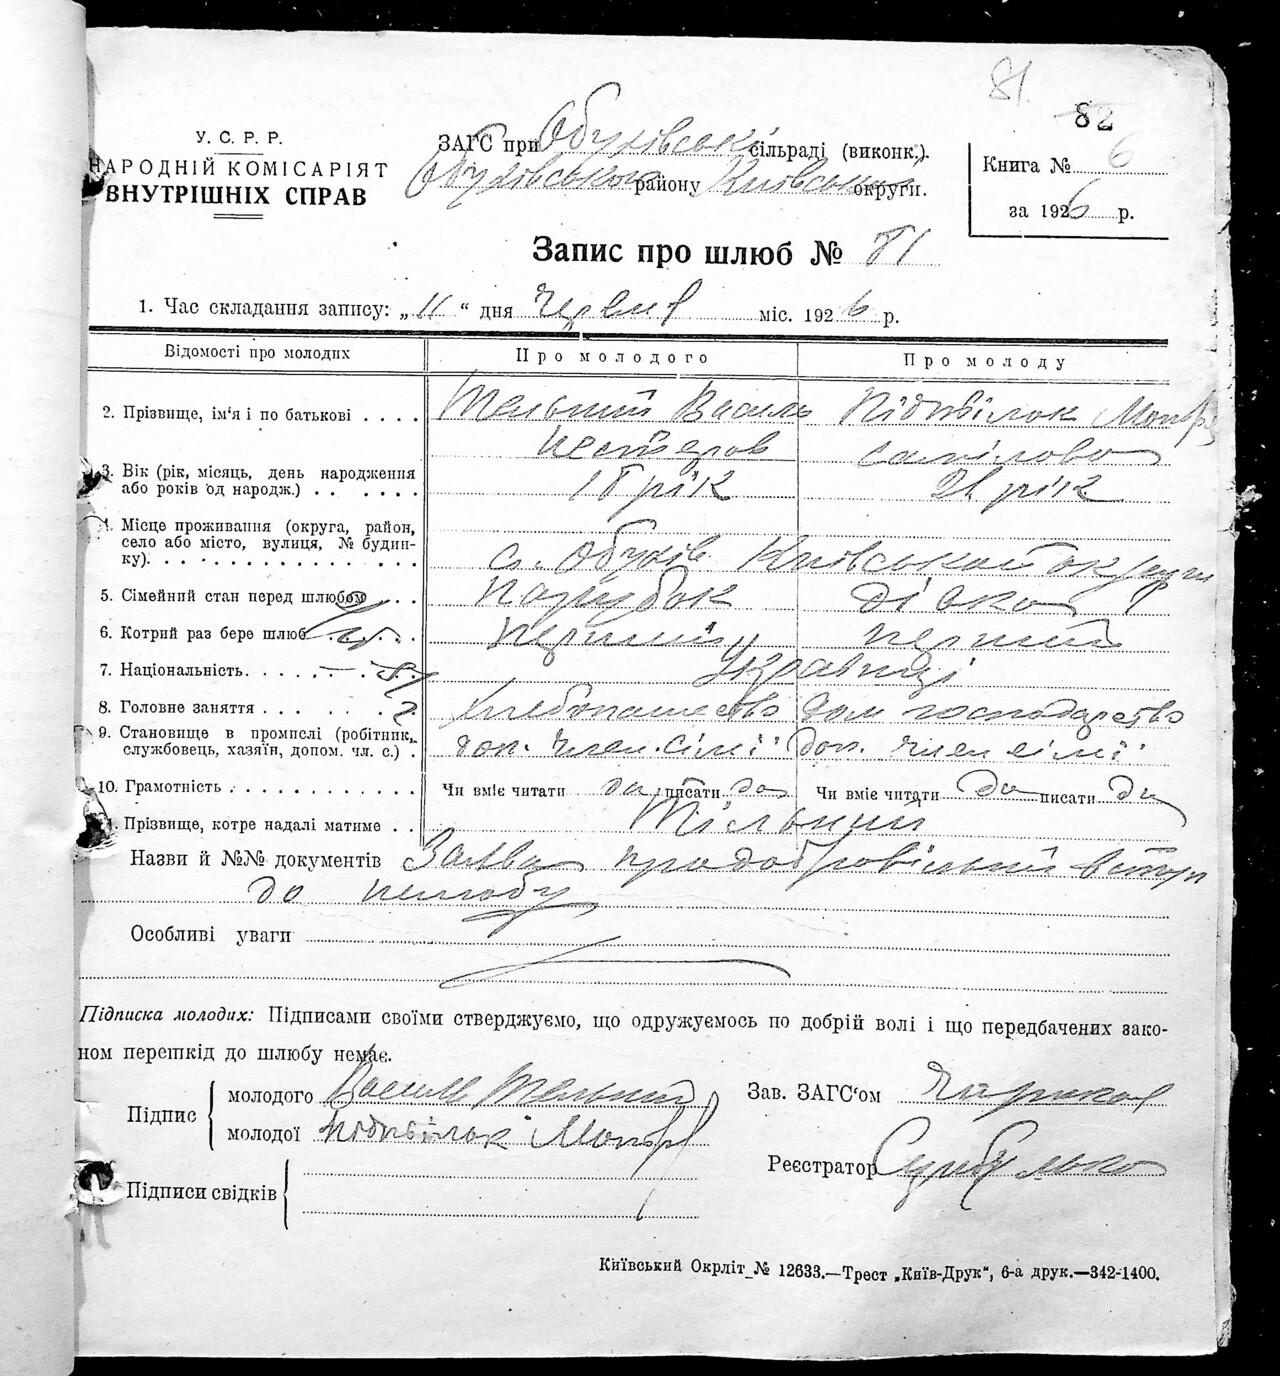 81.
82
У. С. Р. Р.
НАРОДНІЙ КОМІСАРІЯТ
ВНУТРІШНІХ СПРАВ
ЗАГС при Обухівській сільраді (виконк.).
Обухівського району Київської округи.
Книга № 6
за 1926 р.
Запис про шлюб № 81
1. Час складання запису: „11“ дня Червня міс. 1926 р.
Відомості про молодих
Про молодого
Про молоду
2. Прізвище, ім'я і по батькові . . . .
Тельний Василь
Підпвілок
Нестеров
3. Вік (рік, місяць, день народження
або років од народж.) . . . . . .
18 рік
21 рік
4. Місце проживання (округа, район,
село або місто, вулиця, № будин-
ку). . . . . . . . . . . . . . .
с. Обухів Київської округи
5. Сімейний стан перед шлюбом . . .
Парубок
дівка
6. Котрий раз бере шлюб
Перший
перший
7. Національність. . . . . .
Українці
8. Головне заняття . . . . . .
Хлебопашество
дом господарство
9. Становище в промислі (робітник,
службовець, хазяїн, допом. чл. с.) .
доп. член. сімї
доп. член сімї
10. Грамотність . . . . . . . . . . . .
Чи вміє читати да писати да
Чи вміє читати да писати да
11. Прізвище, котре надалі матиме . .
Тільний
Назви й №№ документів Заява про добровільний вступ
до шлюбу
Особливі уваги
Підписка молодих: Підписами своїми стверджуємо, що одружуємось по добрій волі і що передбачених зако-
ном перешкід до шлюбу немає.
Підпис
молодого Василь Тельний
молодої Підпвілок
Зав. ЗАГС'ом
Реєстратор
Підписи свідків
Київський Окрліт № 12633.—Трест „Київ-Друк“, 6-а друк.—342-1400.